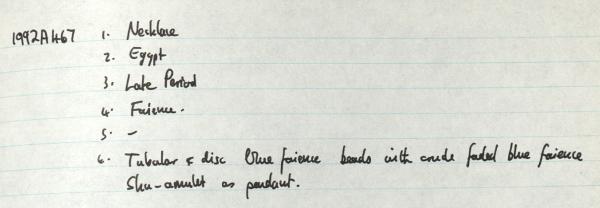 1992A467 1. Necklace
2. Egypt
3. Late Period
4. Faience.
5. –
6. Tubular & disc blue faience beads with crude faded blue faience
Shu-amulet as pendant.